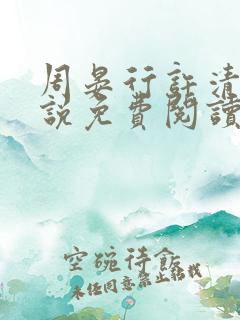 周晏行許清
說免費閱讀
空碗待飯
未经同意禁止转载